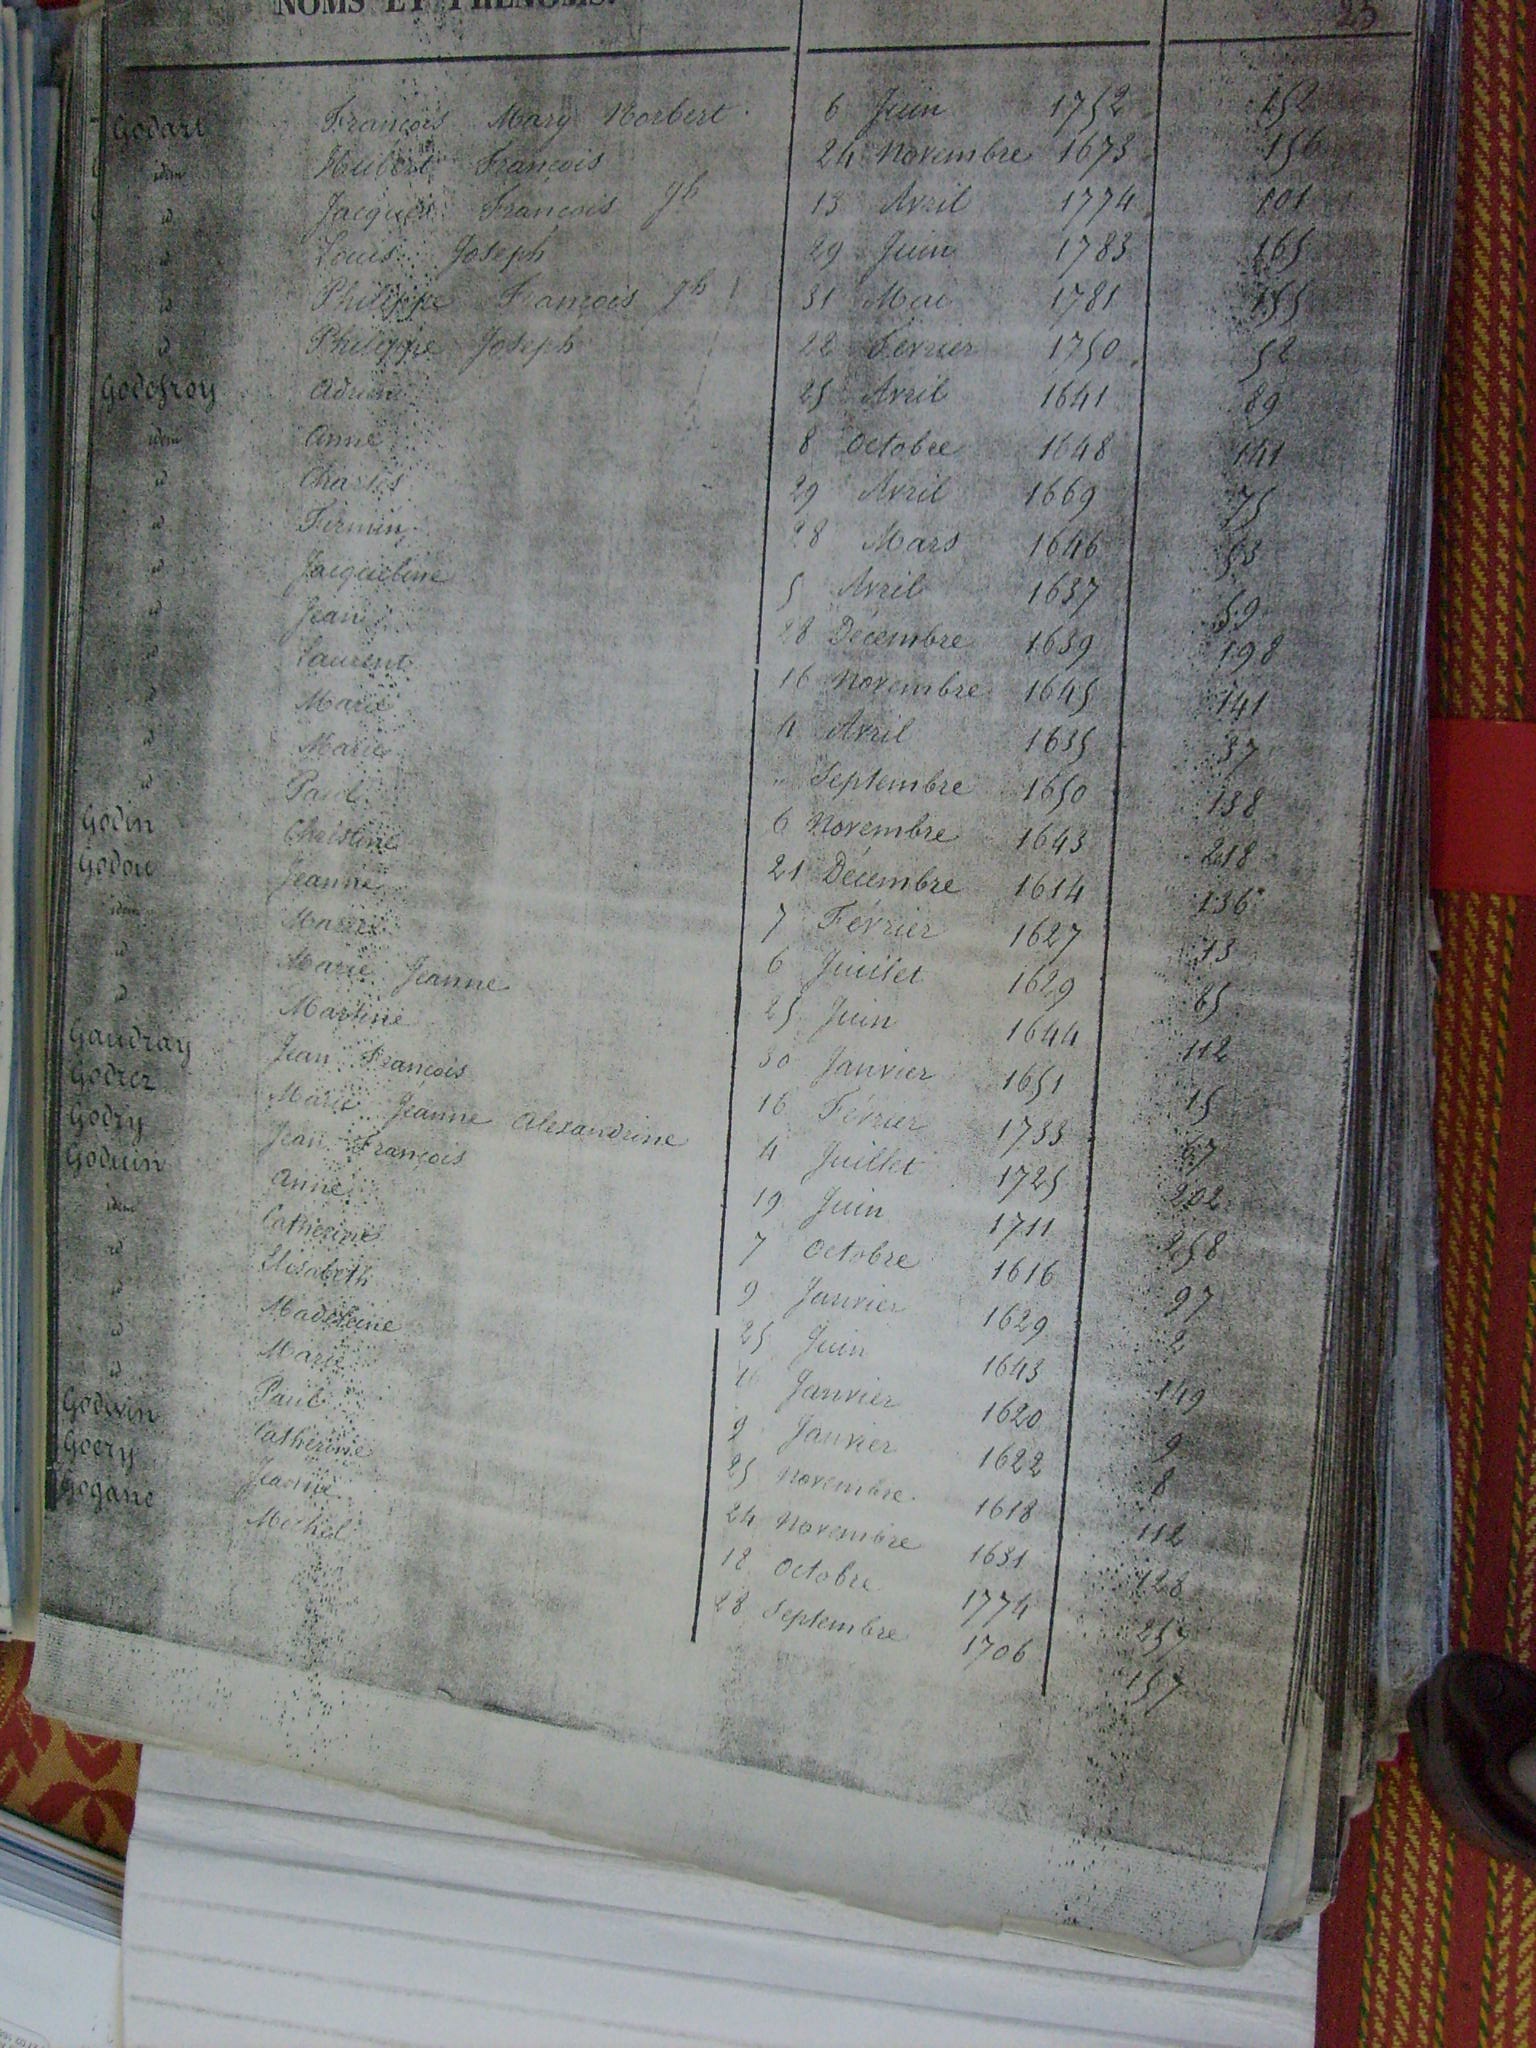 NOMS ET PRÉNOMS. 23
Godart François Mary Norbert 6 Juin 1752 152
idem Hubert François 24 Novembre 1673 156
id Jacques François Jh 13 Avril 1774 101
id Louis Joseph 29 Juin 1783 165
id Philippe François Jh 31 Mai 1781 155
id Philippe Joseph 22 Février 1750 52
Godefroy Adrien 25 Avril 1641 89
idem Anne 8 Octobre 1648 141
id Charles 29 Avril 1669 75
id Firmin 28 Mars 1646 53
id Jacqueline 5 Avril 1637 59
id Jean 28 Décembre 1639 198
id Laurent 16 Novembre 1645 141
id Marie 4 Avril 1635 37
id Marie " Septembre 1650 138
id Paul 6 Novembre 1643 218
Godin Christine 21 Décembre 1614 136
Godou Jeanne 7 Février 1627 13
idem Marie 6 Juillet 1629 85
id Marie Jeanne 25 Juin 1644 112
id Martine 30 Janvier 1651 15
Gaudray Jean François 16 Février 1733 67
Godrez Marie Jeanne Alexandrine 4 Juillet 1725 202
Godry Jean François 19 Juin 1711 258
Goduin Anne 7 Octobre 1616 97
idem Catherine 9 Janvier 1629 2
id Elisabeth 25 Juin 1643 149
id Madeleine 16 Janvier 1620 9
id Marie 9 Janvier 1622 8
id Paul 25 Novembre 1618 112
Godwin Catherine 24 Novembre 1631 128
Goery Jeanne 18 Octobre 1774 257
Gogane Michel 28 Septembre 1706 157